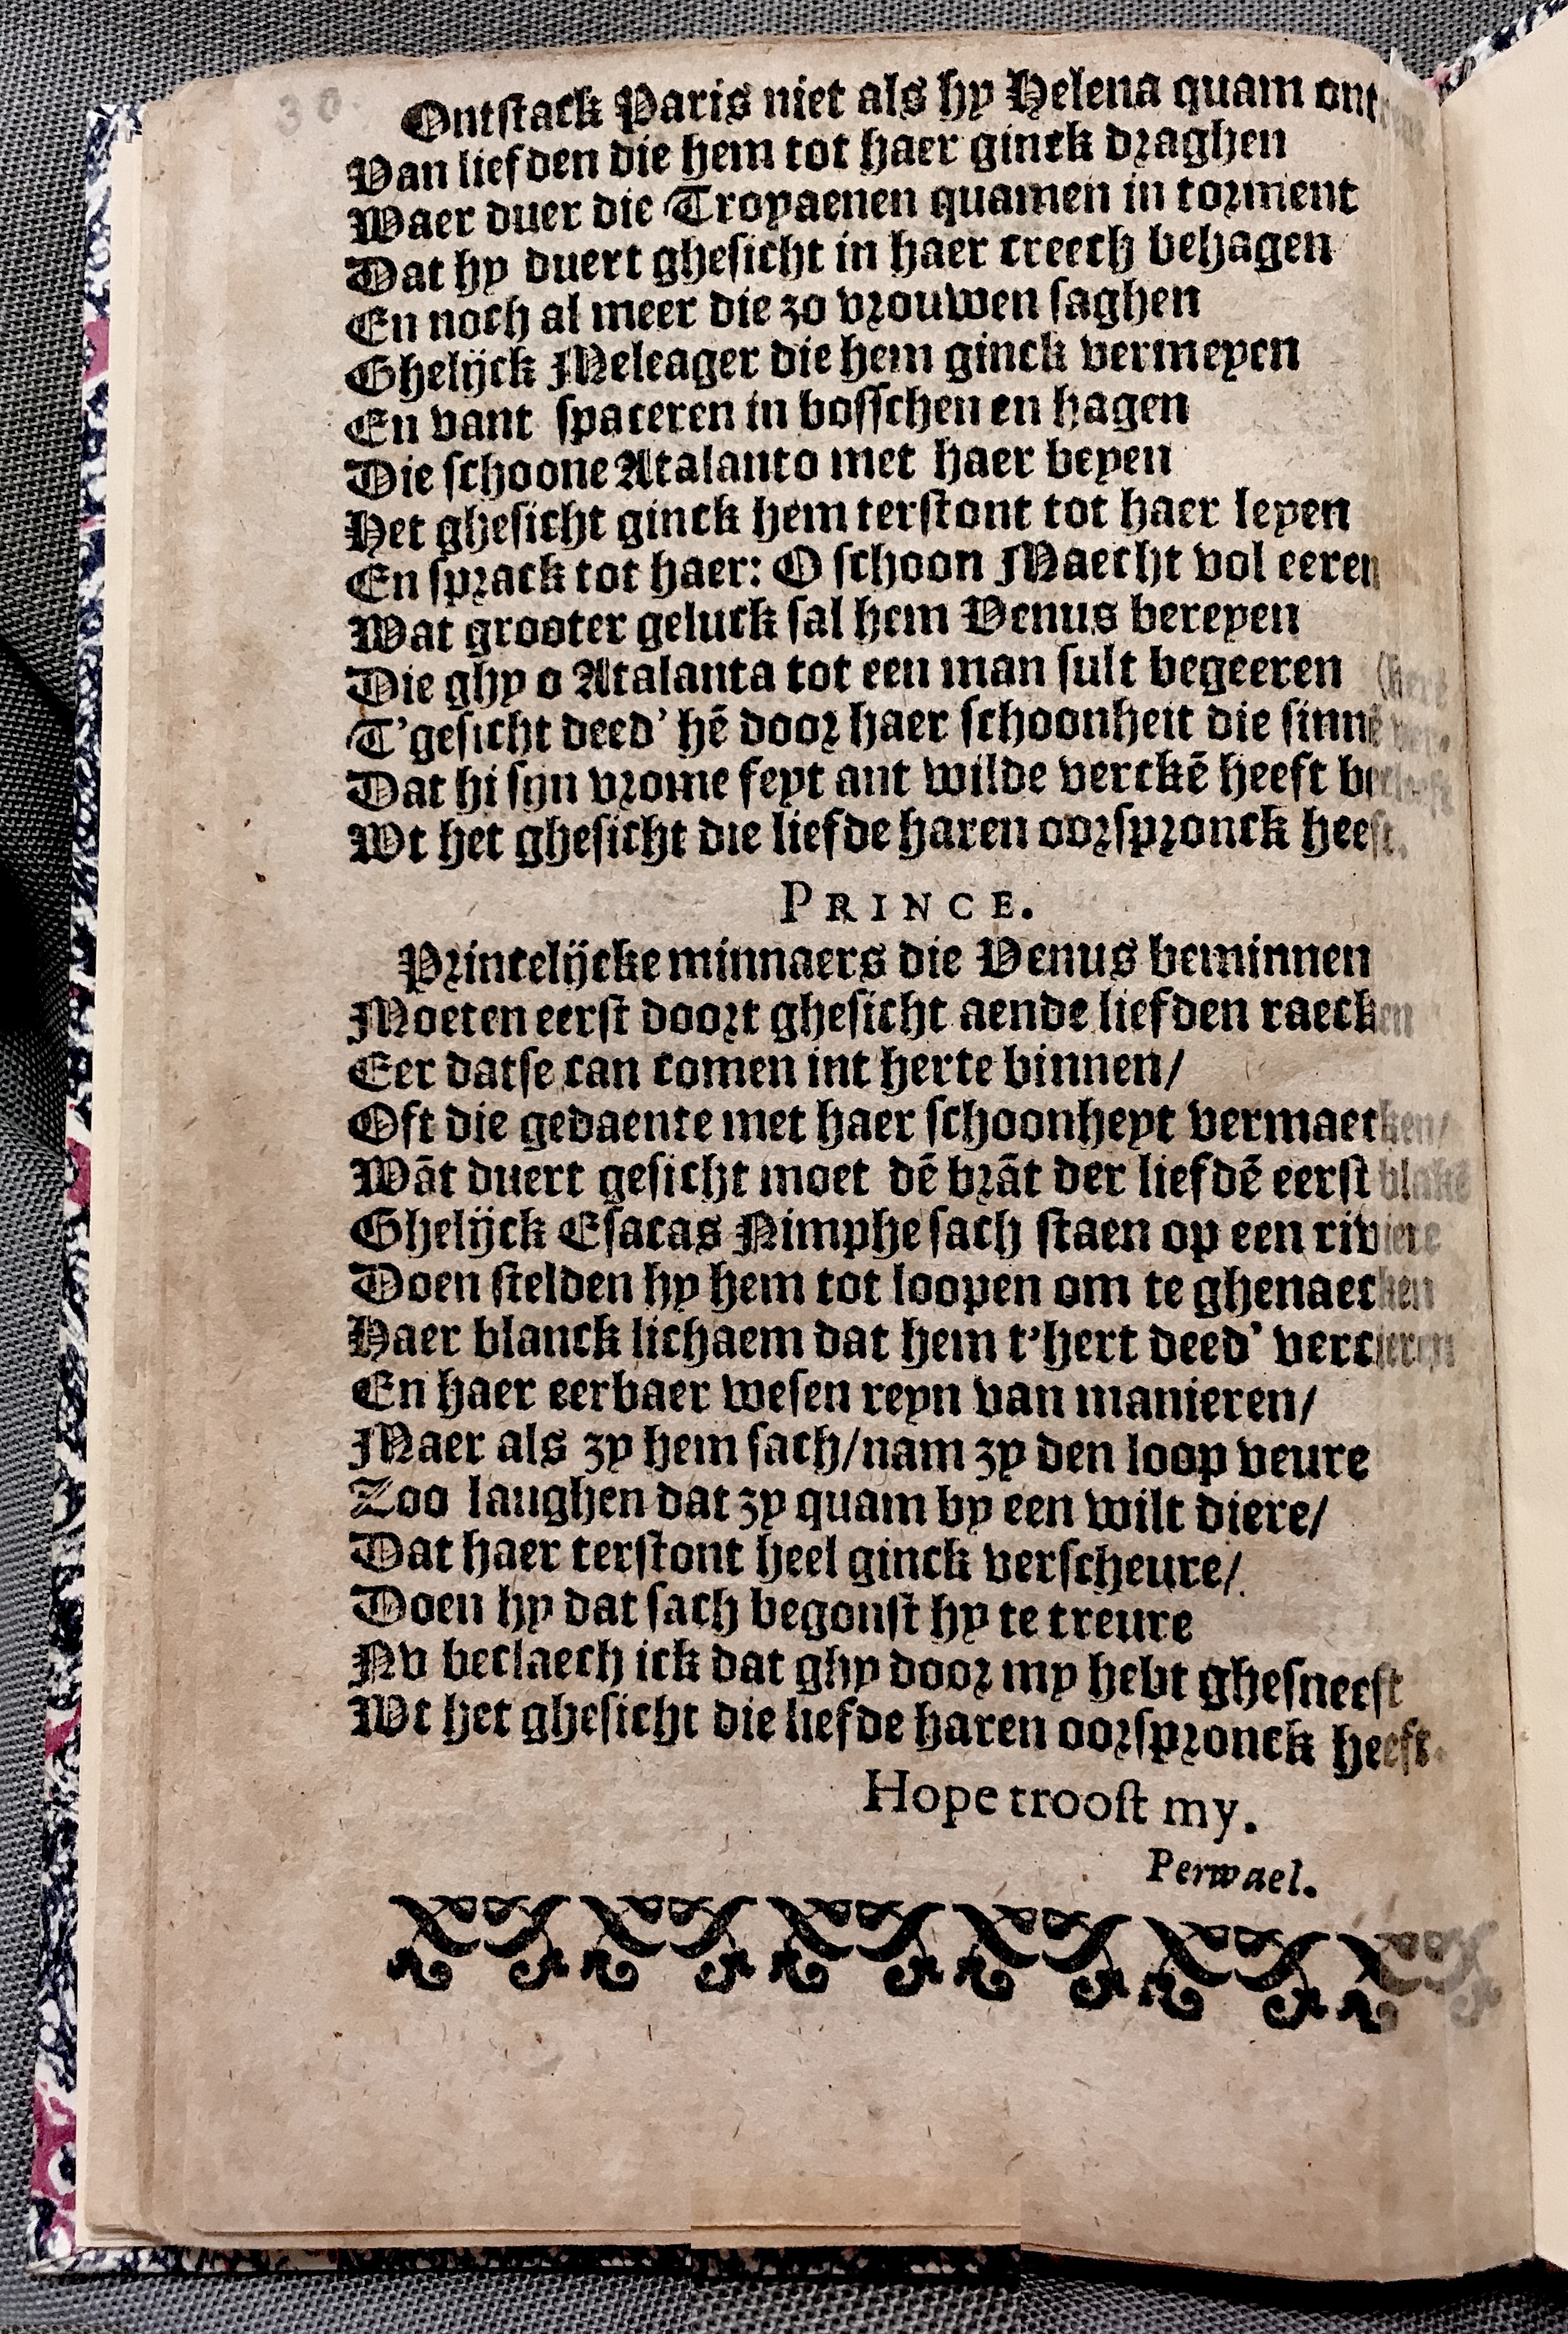 30.
Ontstack Paris niet als hy Helena quam
Van liefden die hem tot haer ginck draghen
Waer duer die Troyaenen quamen in torment
Dat hy duert ghesicht in haer creech behagen
En noch al meer die zo vrouwen saghen
Ghelijck Meleager die hem ginck vermeyen
En vant spaceren in bosschen en hagen
Die schoone Atalanto met haer beyen
Het ghesicht ginck hem terstont tot haer leyen
En sprack tot haer: O schoon Maecht vol eeren
Wat grooter geluck sal hem Venus bereyen
Die ghy o Atalanta tot een man sult begeeren
T'gesicht deed' hē door haer schoonheit die sinnē
Dat hi sijn vrome feyt ant wilde verckē heeft
Wt het ghesicht die liefde haren oorspronck heeft.
PRINCE.
Princelijcke minnaers die Venus beminnen
Moeten eerst doort ghesicht aende liefden raecken
Eer datse can comen int herte binnen/
Oft die gedaente met haer schoonheyt vermaecken/
Wāt duert gesicht moet dē brāt der liefdē eerst blakē
Ghelijck Esacas Nimphe sach staen op een riviere
Doen stelden hy hem tot loopen om te ghenaecken
Haer blanck lichaem dat hem t'hert deed' vercieren
En haer eerbaer wesen reyn van manieren/
Maer als zy hem sach/nam zy den loop veure
Zoo laughen dat zy quam by een wilt diere/
Dat haer terstont heel ginck verscheure/
Doen hy dat sach begonst hy te treure
Nv beclaech ick dat ghy door my hebt ghesneeft
Wt het ghesicht die liefde haren oorspronck heeft.
Hope troost my.
Perwael.